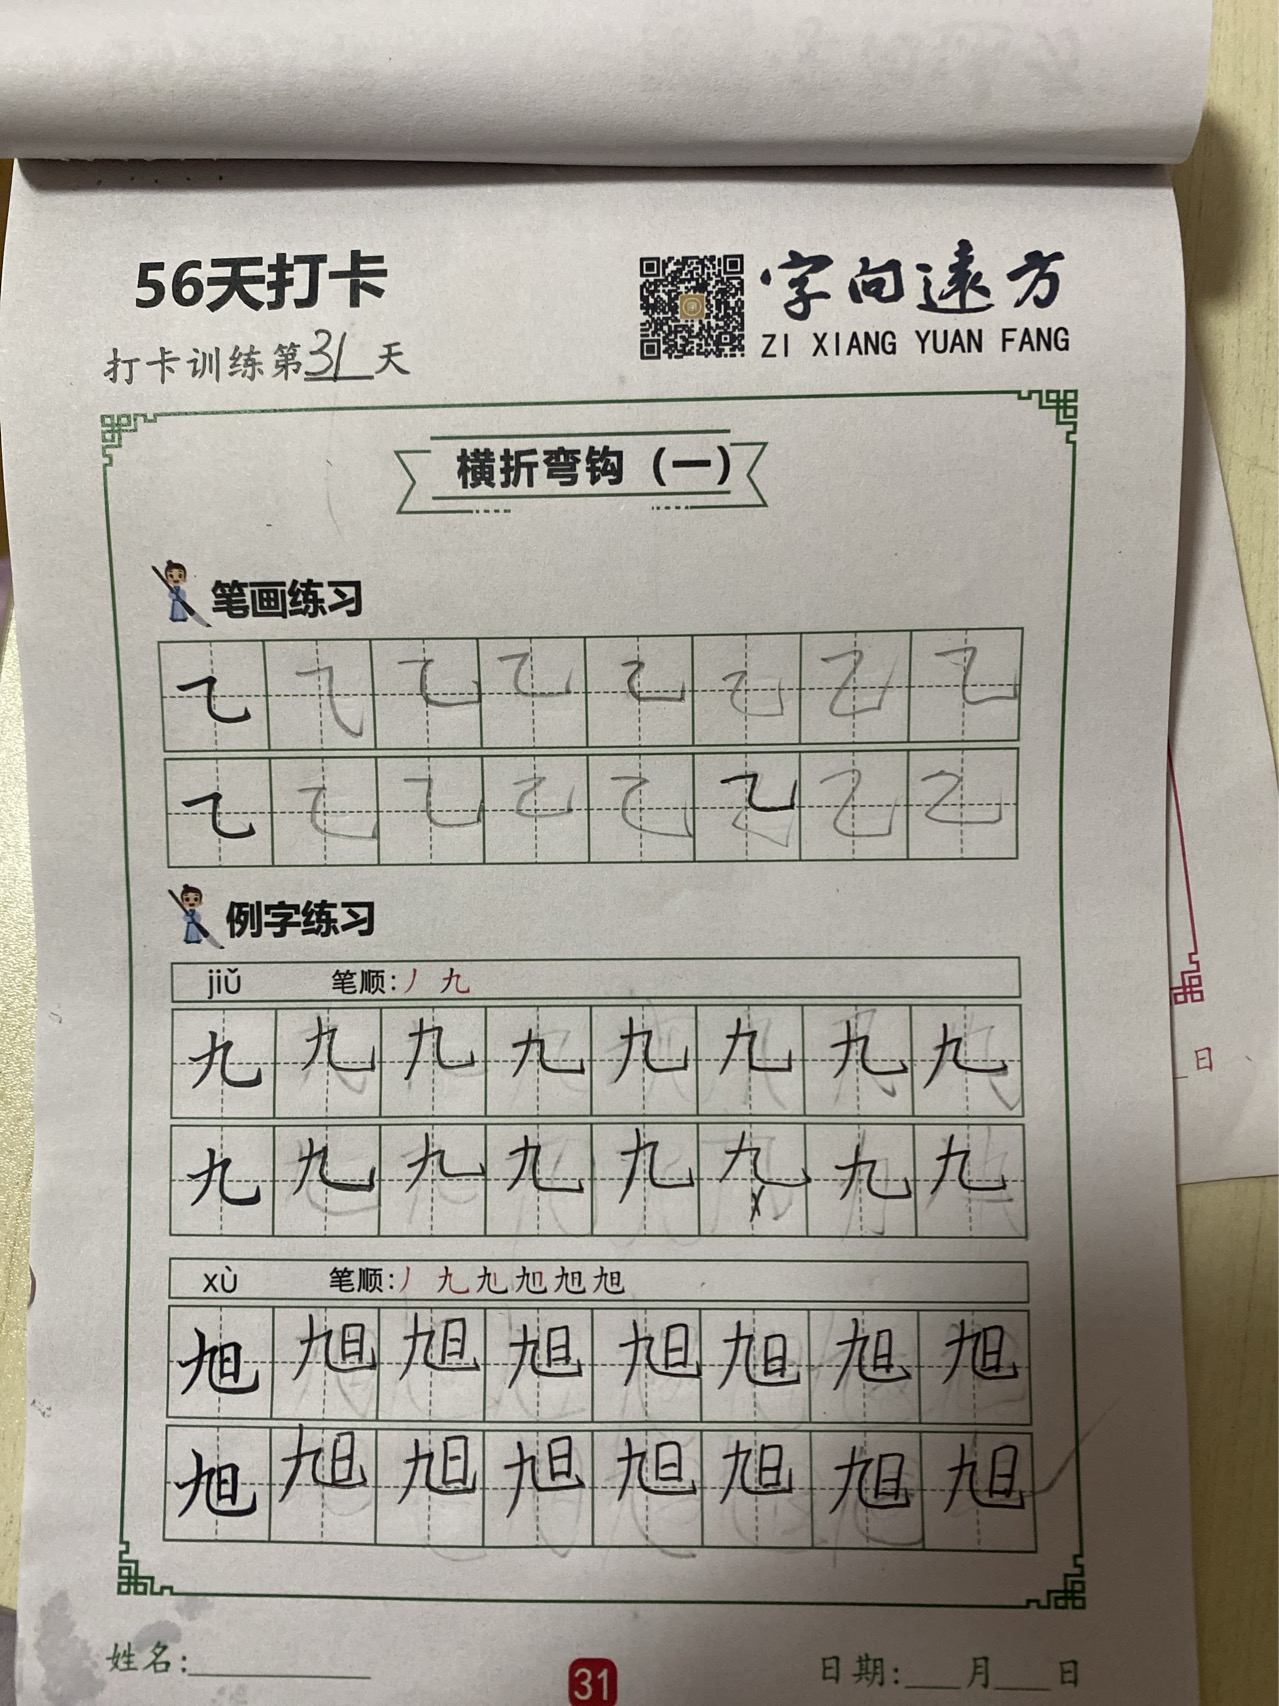 56天打卡
字向远方
ZI XIANG YUAN FANG
打卡训练第31天
横折弯钩（一）
笔画练习
㇈ ㇈ ㇈ ㇈ ㇈ ㇈ ㇈ ㇈
㇈ ㇈ ㇈ ㇈ ㇈ ㇈ ㇈ ㇈
例字练习
jiǔ 笔顺:丿 九
九 九 九 九 九 九 九 九
九 九 九 九 九 九 九 九
xù 笔顺:丿 九 旭 旭 旭 旭
旭 旭 旭 旭 旭 旭 旭 旭
旭 旭 旭 旭 旭 旭 旭 旭
姓名:
31
日期: 月 日
日